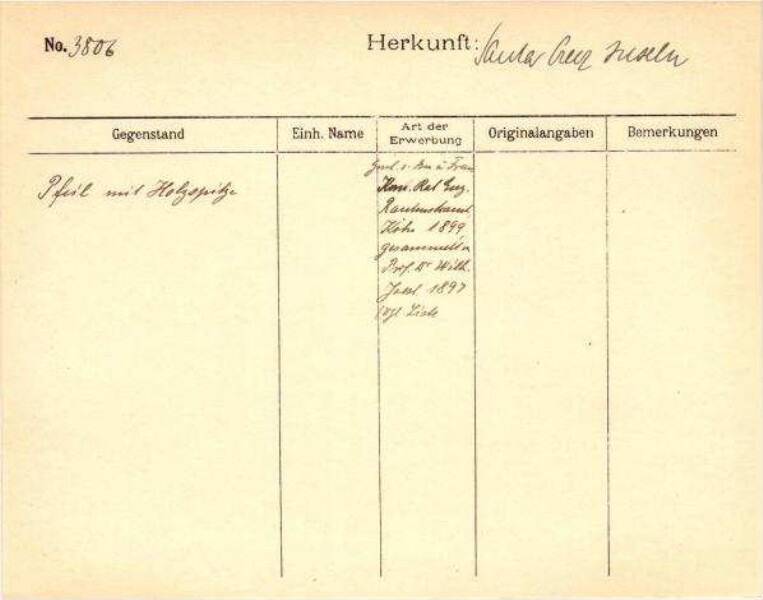 No. 3806
Herkunft: Santa Cruz Inseln
Gegenstand
Einh. Name
Art der Erwerbung
Originalangaben
Bemerkungen
Pfeil mit Holzspitze
u Frau
Rat Eug.
Rautenstrauch
Köln 1899
gesammelt v
Prof. Dr Wilh.
Joest 1897
vgl. Liste